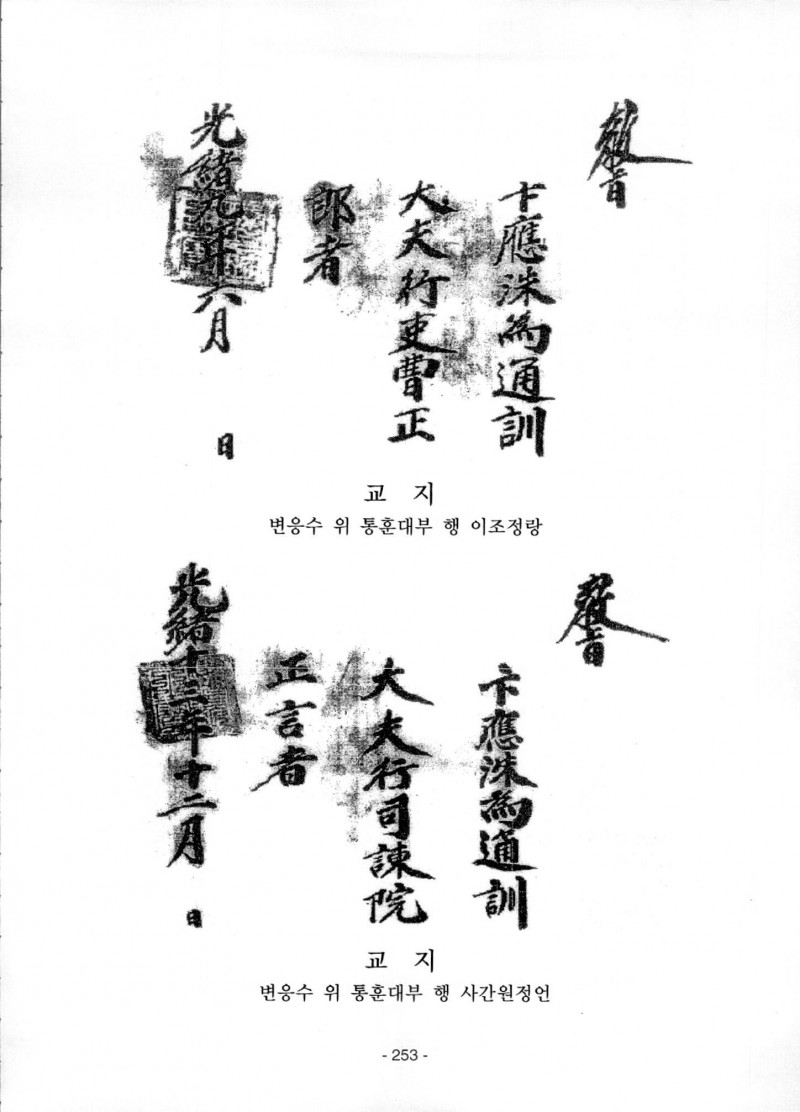 敎旨
卞應洙為通訓
大夫行吏曹正
郎者
光緖九年六月 日
교 지
변응수 위 통훈대부 행 이조정랑
敎旨
卞應洙為通訓
大夫行司諫院
正言者
光緖十三年十二月 日
교 지
변응수 위 통훈대부 행 사간원정언
- 253 -